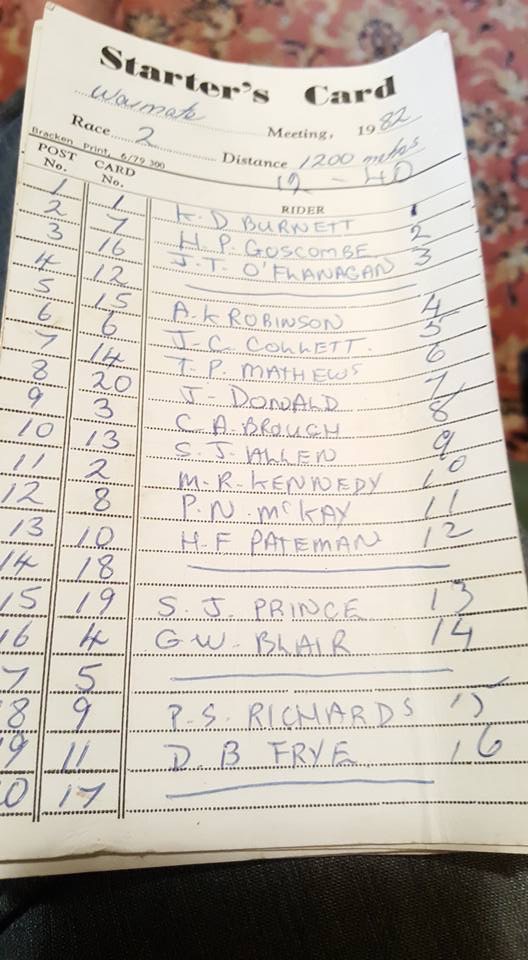 Starter's Card
Waimate Meeting, 1982
Race 2 Distance 1200 metres
Bracken Print, 6/79 300
12 - 40
POST No. CARD No. RIDER
1 1 K. D BURNETT 1
2 7 H. P. GOSCOMBE 2
3 16 J. T. O'FLANAGAN 3
4 12
5 15 A. K ROBINSON 4
6 6 J. C. COLLETT. 5
7 14 T. P. MATHEWS 6
8 20 J. DONALD 7
9 3 C. A. BROUGH 8
10 13 S. J. ALLEN 9
11 2 M. R. KENNEDY 10
12 8 P. N. McKAY 11
13 10 H. F PATEMAN 12
14 18
15 19 S. J. PRINCE 13
16 4 G. W. BLAIR 14
7 5
8 9 P. S. RICHARDS 15
9 11 D. B FRYE 16
0 17